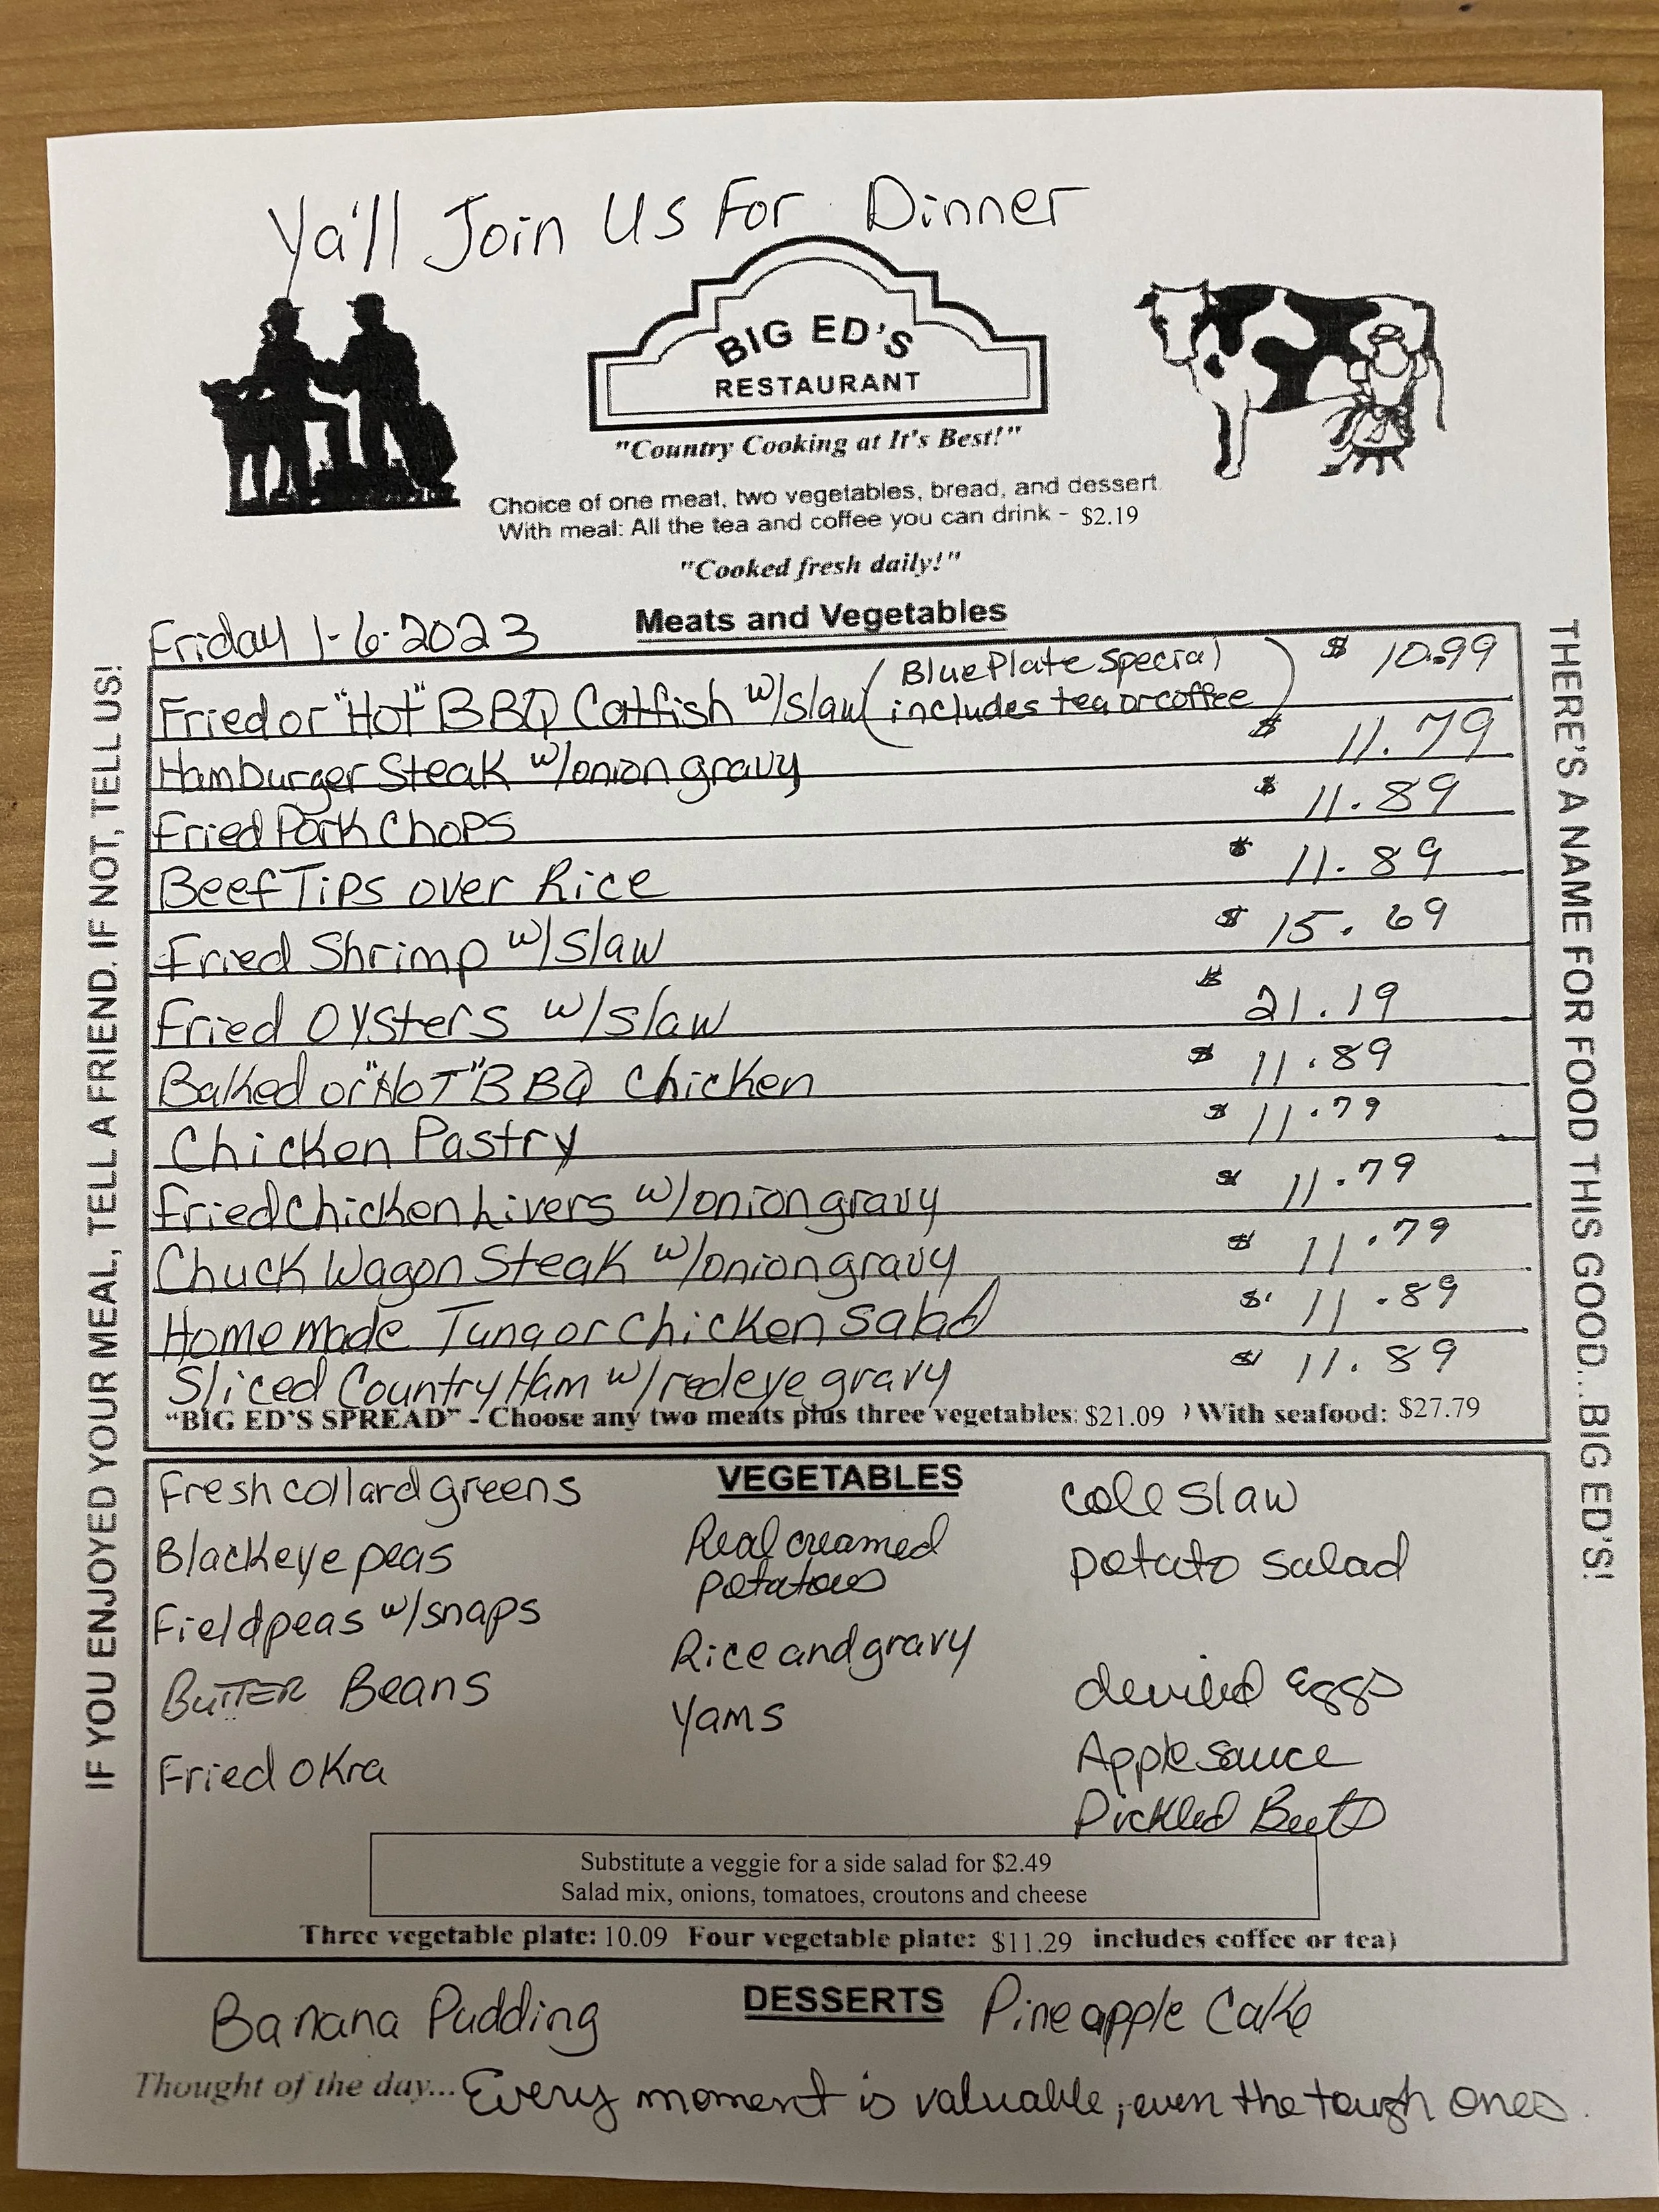 Ya'll Join Us For Dinner
BIG ED'S
RESTAURANT
"Country Cooking at It's Best!"
Choice of one meat, two vegetables, bread, and dessert.
With meal: All the tea and coffee you can drink - $2.19
"Cooked fresh daily!"
Friday 1-6-2023 Meats and Vegetables
Fried or "Hot" BBQ Catfish w/slaw (Blue Plate Special includes tea or coffee) $ 10.99
Hamburger Steak w/onion gravy $ 11.79
Fried Pork Chops $ 11.89
Beef Tips over Rice $ 11.89
Fried Shrimp w/slaw $ 15.69
Fried Oysters w/slaw $ 21.19
Baked or "HOT" BBQ Chicken $ 11.89
Chicken Pastry $ 11.79
Fried Chicken Livers w/onion gravy $ 11.79
Chuck Wagon Steak w/onion gravy $ 11.79
Homemade Tuna or Chicken Salad $ 11.89
Sliced Country Ham w/redeye gravy $ 11.89
"BIG ED'S SPREAD" - Choose any two meats plus three vegetables: $21.09 ) With seafood: $27.79
VEGETABLES
Fresh collard greens
Blackeye peas
Field peas w/snaps
Butter Beans
Fried Okra
Real creamed
potatoes
Rice and gravy
Yams
Cole Slaw
potato salad
deviled Eggs
Applesauce
Pickled Beets
Substitute a veggie for a side salad for $2.49
Salad mix, onions, tomatoes, croutons and cheese
Three vegetable plate: 10.09 Four vegetable plate: $11.29 includes coffee or tea)
Banana Pudding DESSERTS Pineapple Cake
Thought of the day... Every moment is valuable, even the tough ones.
IF YOU ENJOYED YOUR MEAL, TELL A FRIEND. IF NOT, TELL US!
THERE'S A NAME FOR FOOD THIS GOOD...BIG ED'S!